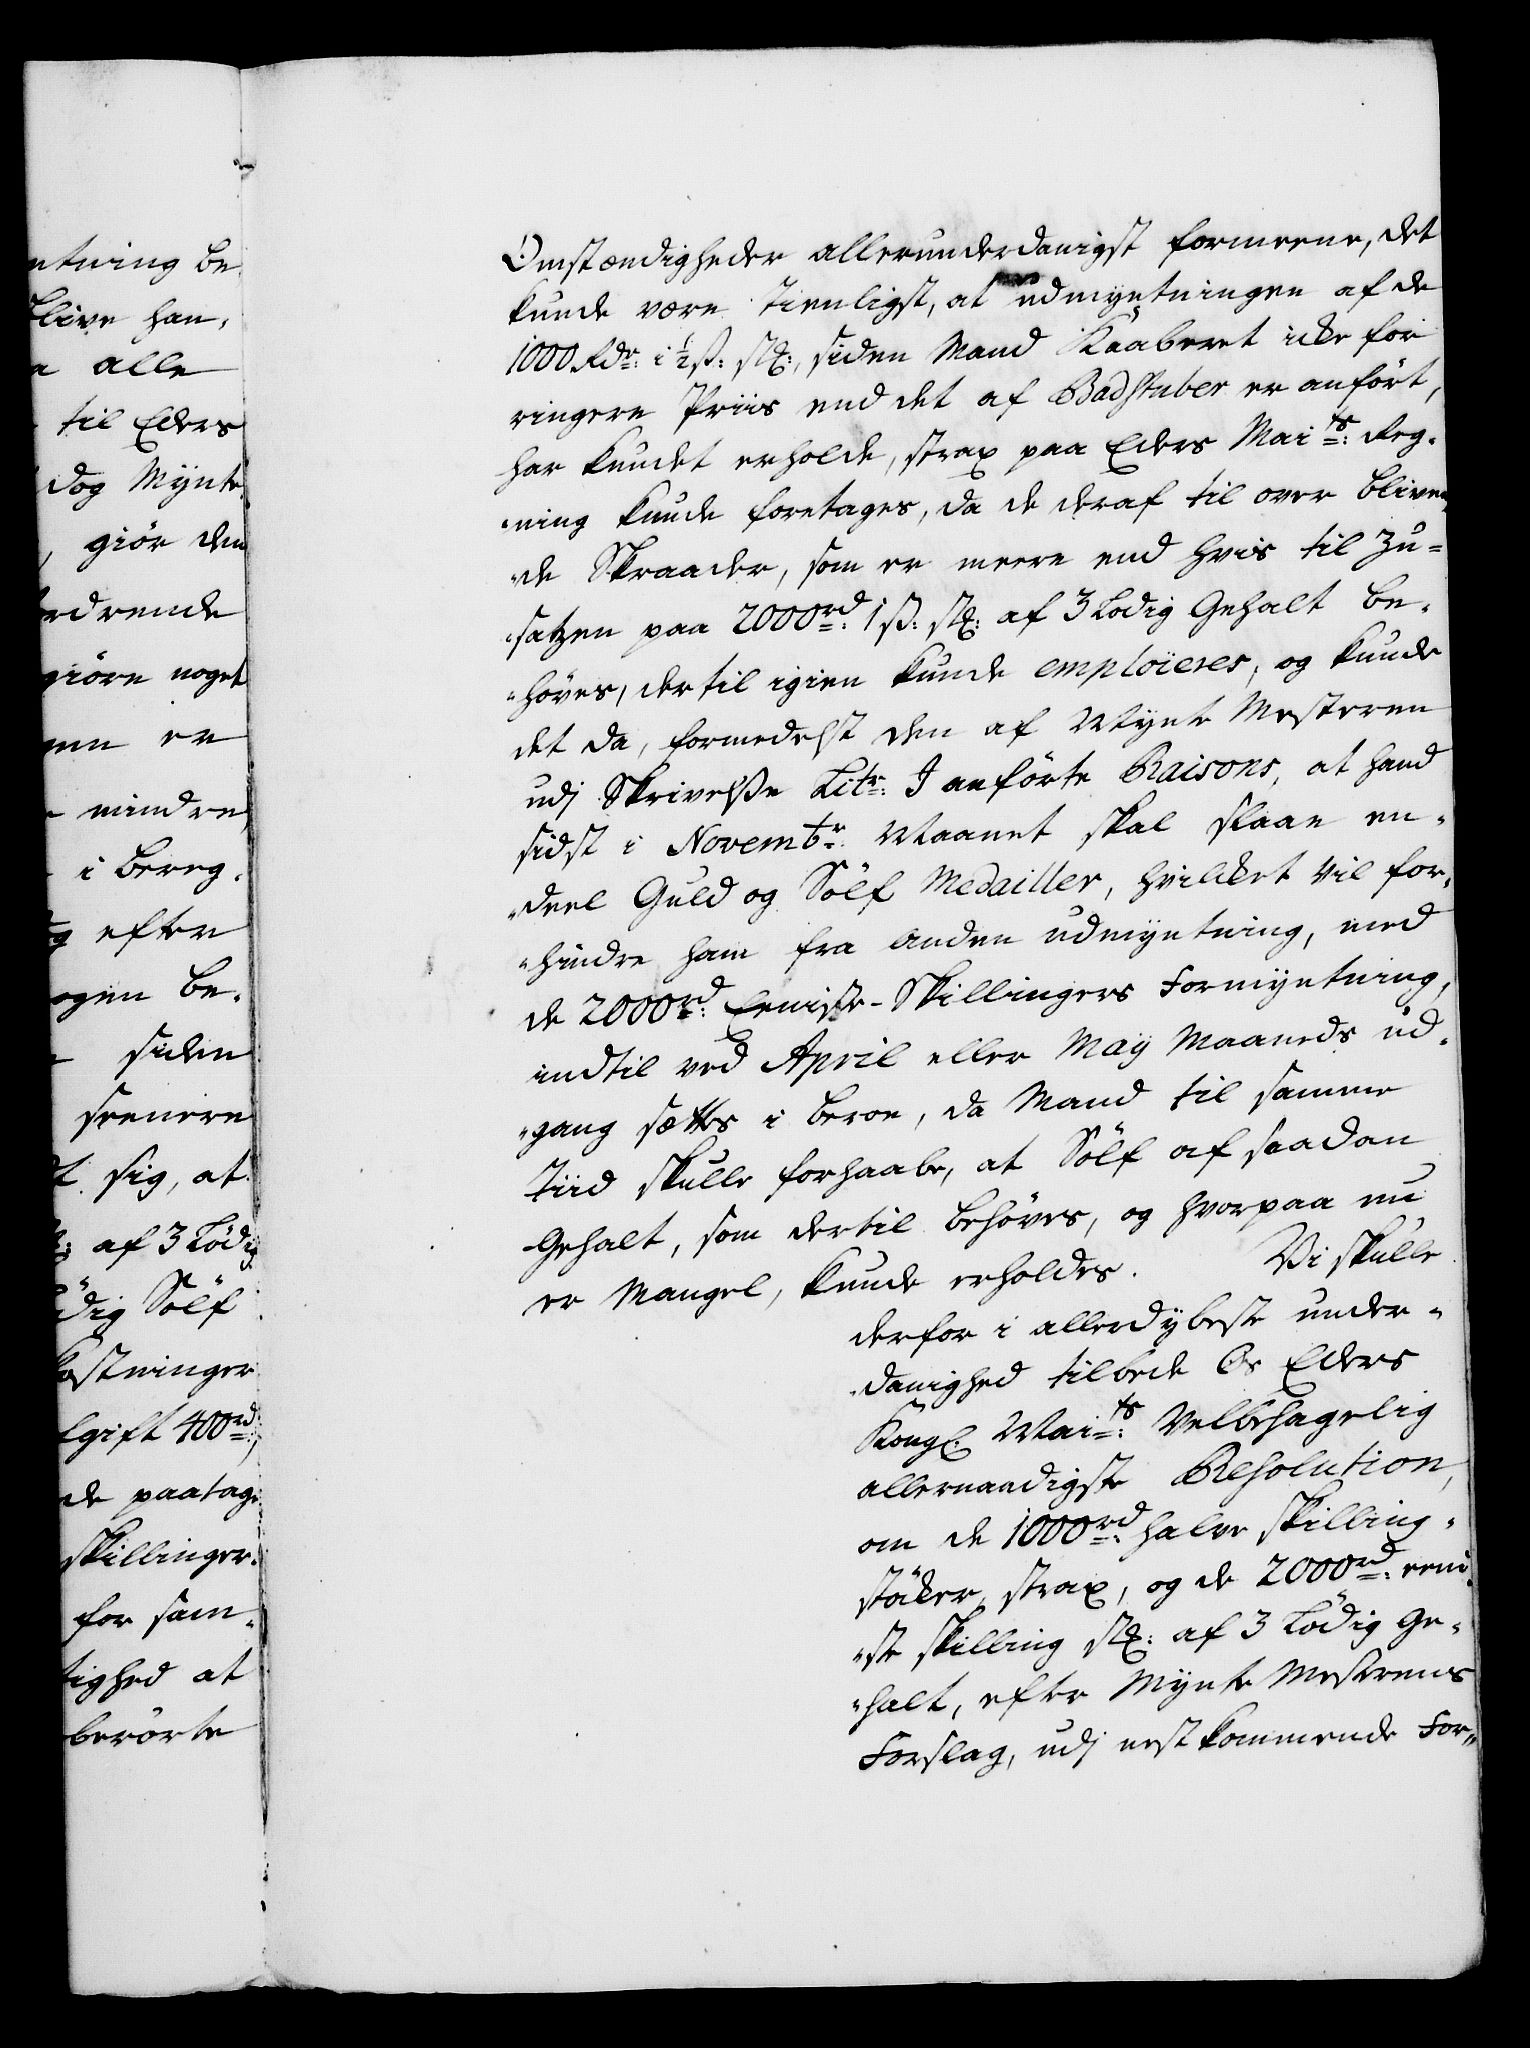 ntning be
blive han,
n alle
til Eders
dog Mynte
, giör den
rdrende
giöre noget
men er
mindre
i bereg,
efter
ogen be,
siden
seenere
sig, at
af 3 Lödig
ödig Sölf
kostninger
lgift 400rd:,
de paatage
skillinger,
for sam,
tighed at
berörte
Omstændigheder allerunderdanigst formeene, det
kunde være tienligst, at udmyntningen af de
1000 Rdr: i ½ ß: st:, siden Mand Kaaberet icke for
ringere Priis end det af Badstuber er anfört,
har kundet erholde, strax paa Eders Maits: Reg,
ning kunde foretages, da de deraf til over bliven,
de Skraader, som er meere end hvis til Zu=
satzen paa 2000rd: 1 ß: st: af 3 Lodig Gehalt be,
höves, dertil igien kunde emploieres, og kunde
det da, formedelst den af Mynte Mesteren
udj Skrivelße Litr: J anförte Raisons, at hand
sidst i Novembr: Maanet skal slaae en,
deel Guld og Sölf Medailler, hvilcket vil for,
hindre ham fra anden udmyntning, med
de 2000rd: Eeniste-Skillingers Formyntning,
indtil ved April eller Maÿ Maaneds ud,
gang sættes i beroe, da Mand til samme
Tiid skulle forhaabe, at Sölf af saadan
Gehalt, som dertil behöves, og hvorpaa nu
er Mangel, kunde erholdes. Vi skulle
derfor i allerdybeste under,
danighed tilbede Os Eders
Kongl: Maits: Velbehagelig
allernaadigste Resolution,
om de 1000rd: halve skilling,
stöcker strax, og de 2000rd: eeni,
ste skilling st: af 3 Lödig Ge,
halt, efter Mynte Mesterens
Forslag, udj nestkommende For,,